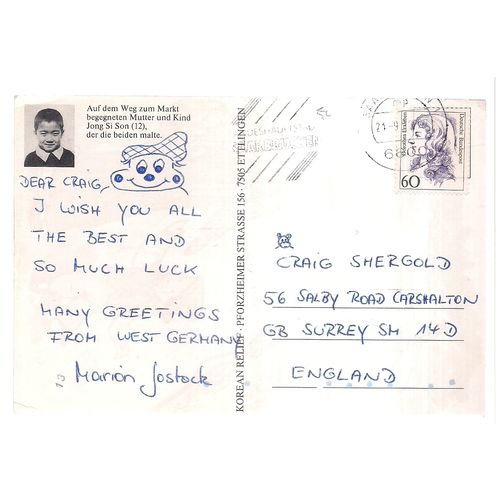 Auf dem Weg zum Markt
begegneten Mutter und Kind
Jong Si Son (12),
der die beiden malte.
DEAR CRAIG,
I WISH YOU ALL
THE BEST AND
SO MUCH LUCK
MANY GREETINGS
FROM WEST GERMANY
Marion Jostock
KOREAN RELIEF · PFORZHEIMER STRASSE 156 · 7505 ETTLINGEN
60
Deutsche Bundespost
CRAIG SHERGOLD
56 SALBY ROAD CARSHALTON
GB SURREY SM 14D
ENGLAND